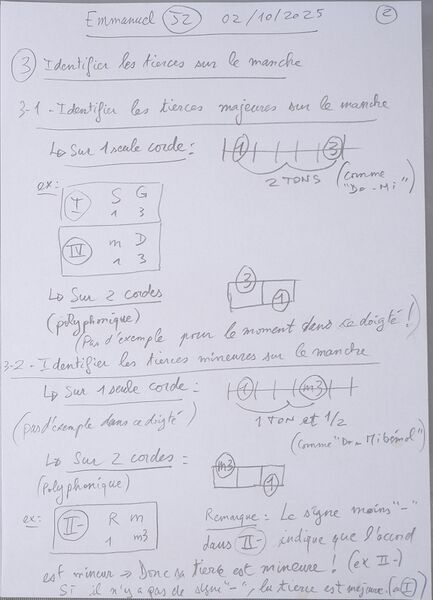 Emmanuel 52 02/10/2025 2
3 Identifier les tierces sur le manche
3-1 - Identifier les tierces majeures sur le manche
↳ Sur 1 seule corde :
1 3
2 TONS
(comme "Do - Mi")
ex :
I S G
1 3
IV m D
1 3
↳ Sur 2 cordes
3
1
(polyphonique)
(Pas d'exemple pour le moment dans ce doigté !)
3-2 - Identifier les tierces mineures sur le manche
↳ Sur 1 seule corde :
1 m3
(pas d'exemple dans ce doigté)
1 TON et 1/2
(comme "Do - Mi bémol")
↳ Sur 2 cordes :
m3
1
(Polyphonique)
ex :
II- R m
1 m3
Remarque : Le signe moins "-"
dans II- indique que l'accord
est mineur → Donc sa tierce est mineure ! (ex II-)
Si il n'y a pas de signe "-", la tierce est majeure. (ex I)